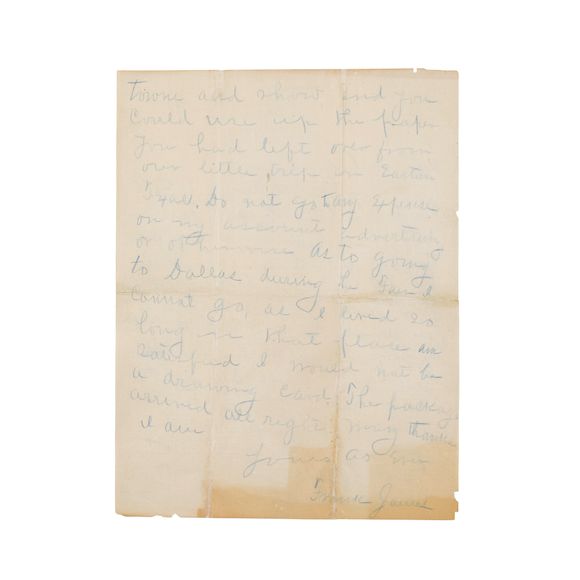 towne and show and you
Could use up the paper
You had left over from
our little trip in Eastern
Texas. Do not go to any Expense
on my account advertising
or otherwise As to going
to Dallas during the Fair I
Cannot go, as I lived so
long in that place am
satisfied I would not be
a drawing Card. The package
arrived all right many thanks
I am
Yours as Ever
Frank James